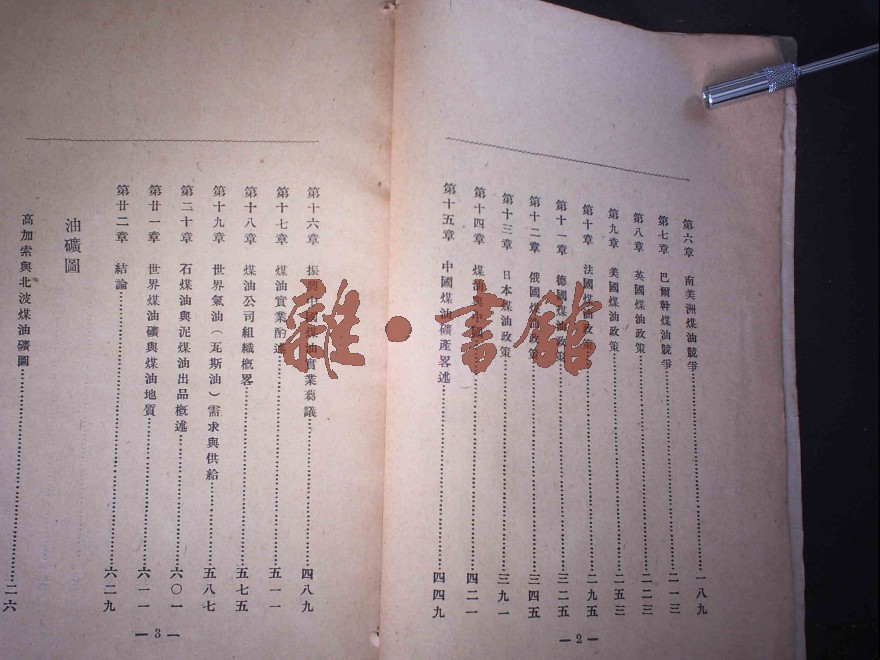 第六章 南美洲煤油競爭……一八九
第七章 巴爾幹煤油競爭……二一三
第八章 英國煤油政策……二二三
第九章 美國煤油政策……二五三
第十章 法國煤油政策……二九五
第十一章 德國煤油政策……三二五
第十二章 俄國煤油政策……三四五
第十三章 日本煤油政策……三九一
第十四章 煤油與中國……四二一
第十五章 中國煤油礦產畧述……四四九
— 2 —
第十六章 振興中國煤油實業芻議……四八九
第十七章 煤油實業酌述……五一一
第十八章 煤油公司組織概畧……五七五
第十九章 世界氣油（瓦斯油）需求與供給……五八七
第二十章 石煤油與泥煤油出品概述……六〇一
第廿一章 世界煤油礦與煤油地質……六一一
第廿二章 結論……六二九
油礦圖
高加索與北波煤油礦圖……二六
— 3 —
雜·書館